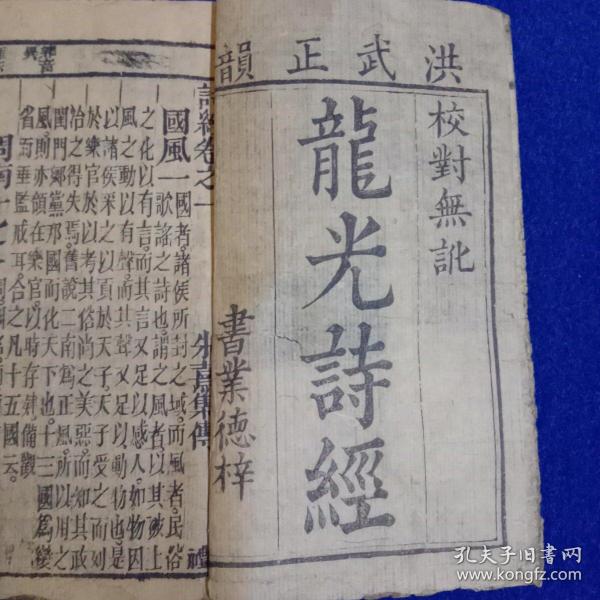 洪武正韻
校對無訛
龍光詩經
書業德梓
詩經卷之一
朱熹集傳
國風一
國者諸侯所封之域而風者民俗
歌謠之詩也謂之風者以其被上
之化以有言而其言又足以感人如物因
風之動以有聲而其聲又足以動物也是
以諸侯采之以貢於天子天子受之而列
於樂官於以考其俗尚之美惡而知其政
治之得失焉舊說二南為正風所以用之
閨門鄉黨邦國而化天下也十三國為變
風則亦領在樂官以時存肄備觀
省而垂監戒耳合之凡十五國云
周南一之一
孔夫子旧书网
www.kongfz.com